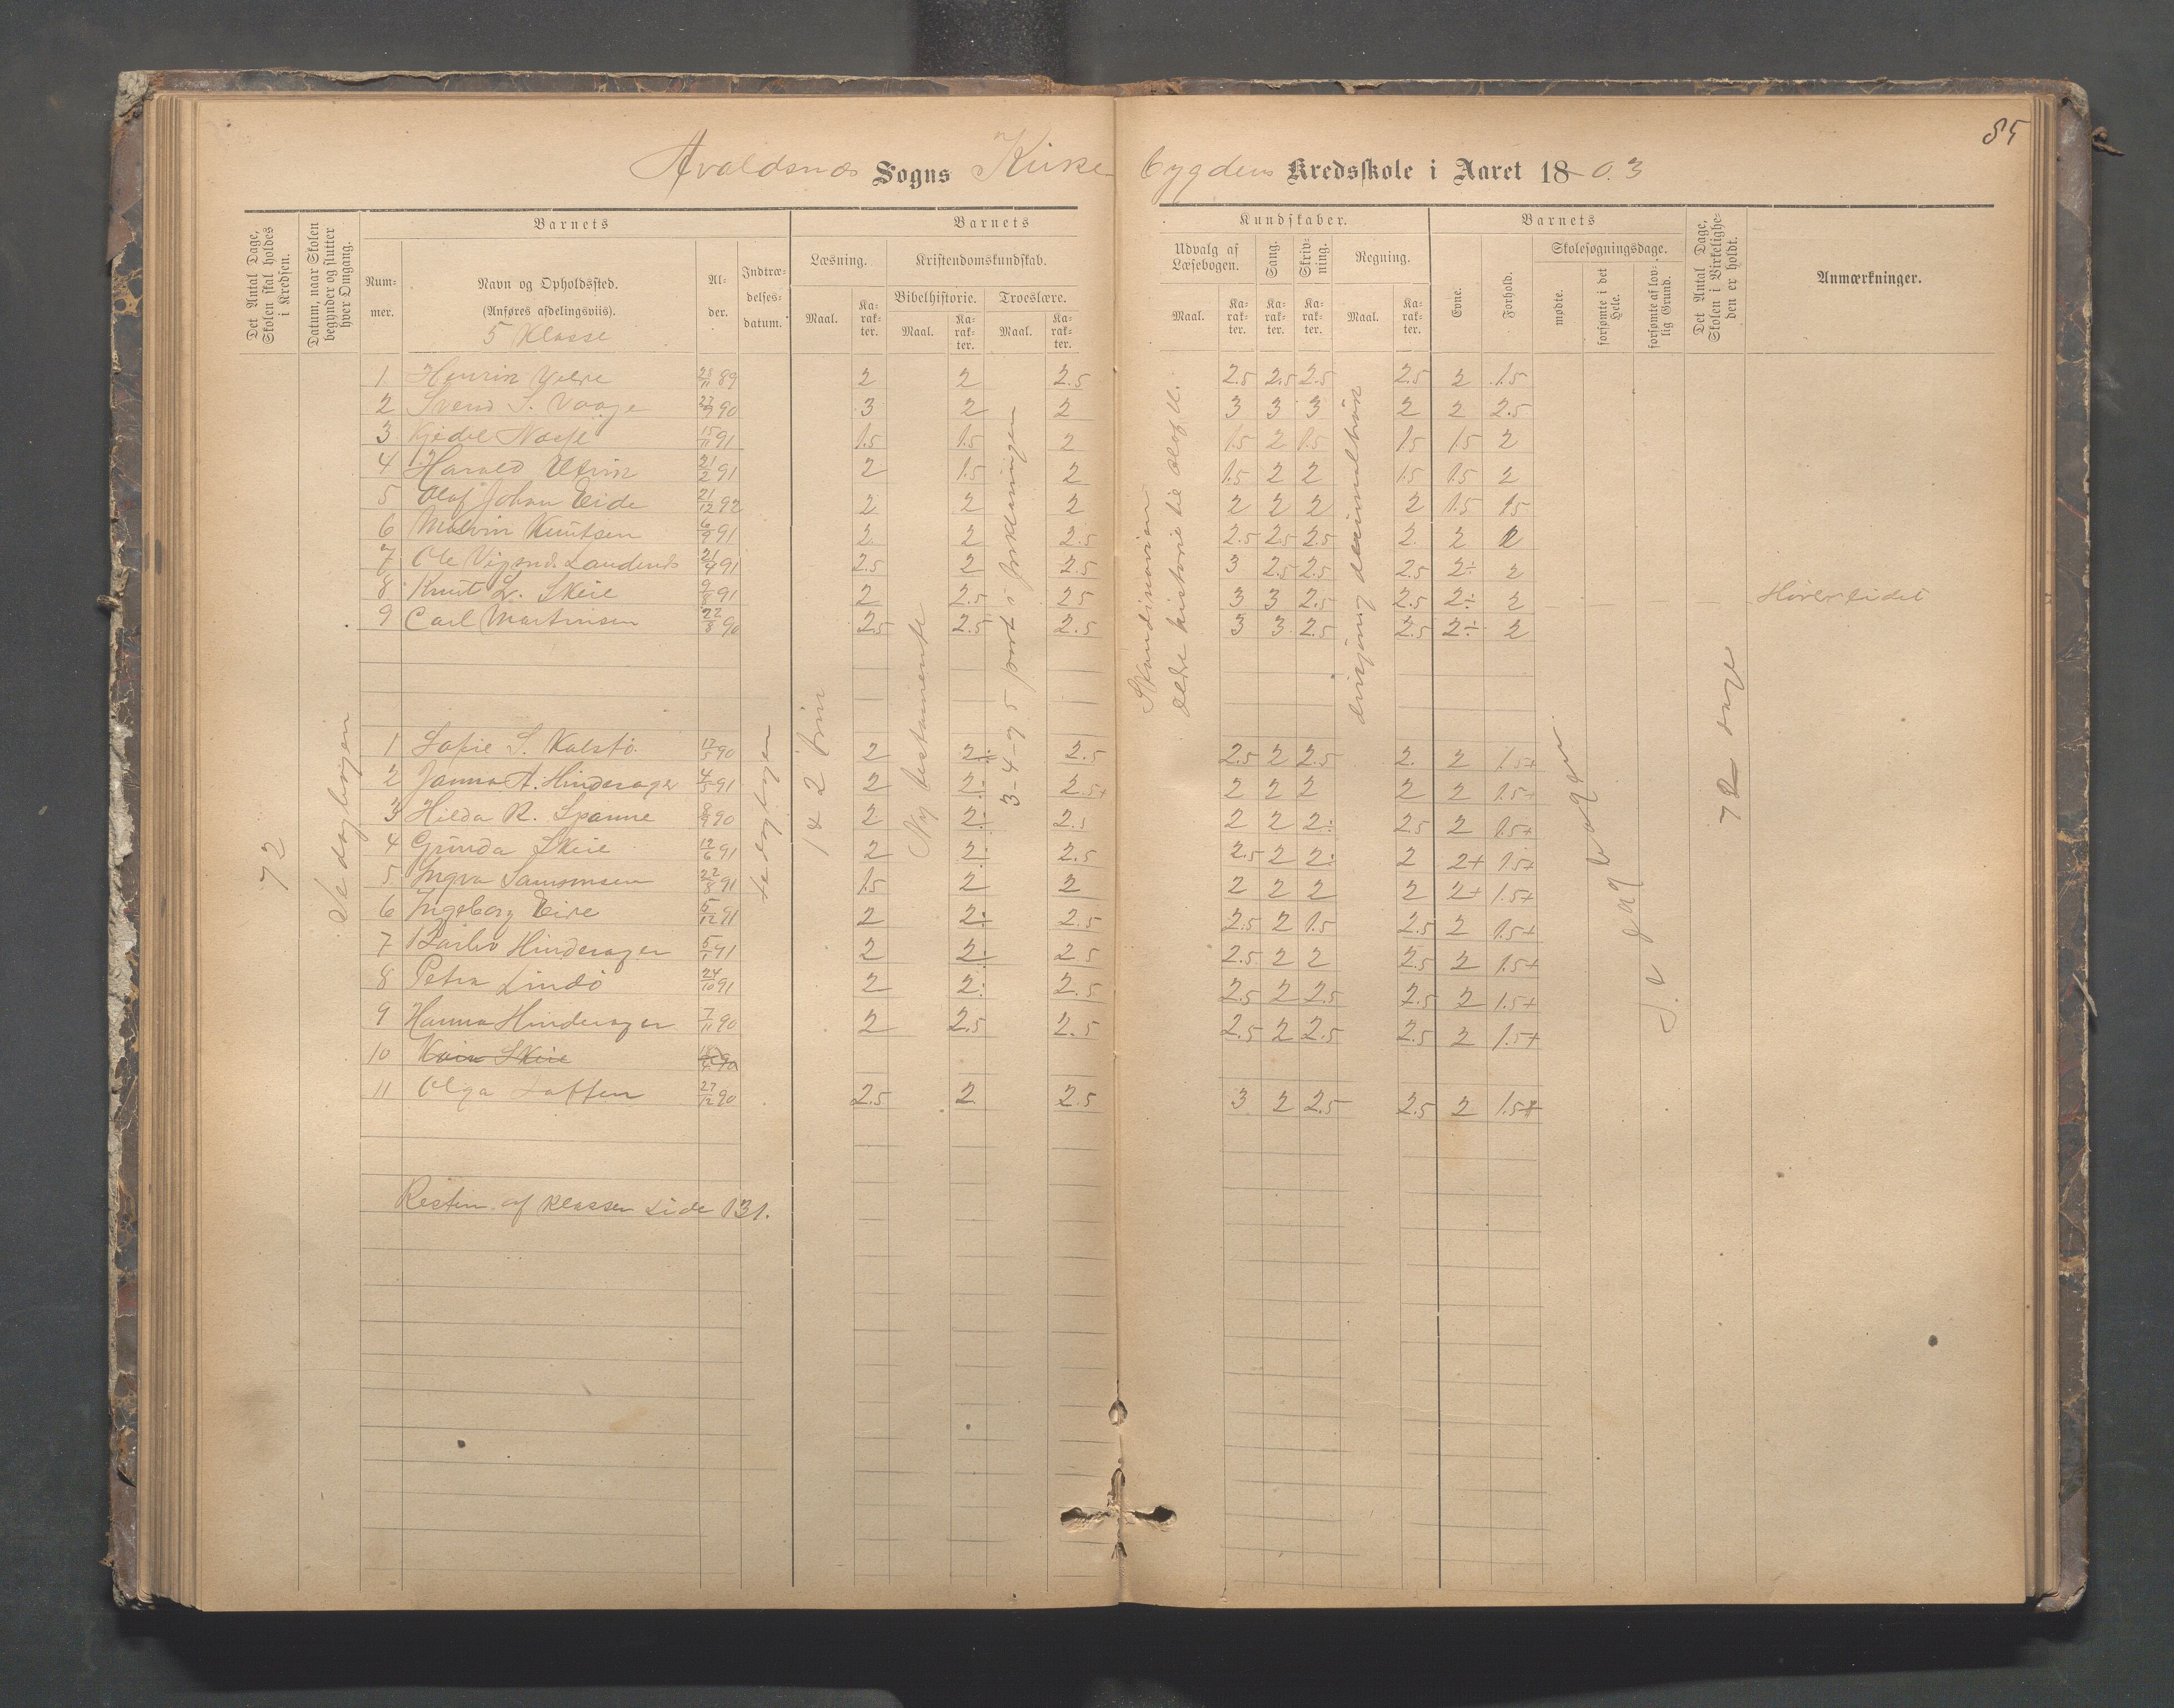 85
Avaldsnes Sogns Kirke bygdens Kredsskole i Aaret 18 03
Det Antal Dage, Skolen skal holdes i Kredsen.
Datum, naar Skolen begynder og slutter hver Omgang.
Barnets
Barnets
Kundskaber.
Barnets
Det Antal Dage, Skolen i Virkeligheden er holdt.
Anmærkninger.
Nummer.
Navn og Opholdssted.
(Anføres afdelingsviis).
5 Klasse
Alder.
Indtrædelsesdatum.
Læsning.
Kristendomskundskab.
Bibelhistorie.
Troeslære.
Maal.
Karakter.
Maal.
Karakter.
Maal.
Karakter.
Udvalg af Læsebogen.
Sang.
Skrivning.
Regning.
Maal.
Karakter.
Karakter.
Karakter.
Maal.
Karakter.
Evne.
Forhold.
Skolesøgningsdage.
mødte.
forsømte i det Hele.
forsømte af lovlig Grund.
1 89 2 2 2.5 2.5 2.5 2.5 2.5 2 1.5
2 Svend S. Vaage 90 3 2 2 3 3 3 2 2 2.5
3 15/11 91 1.5 1.5 2 1.5 2 1.5 1.5 1.5 2
4 Harald Utvik 21/2 91 2 1.5 2 1.5 2 2 1.5 1.5 2
5 Olaf Johan Eide 21/12 92 2 2 2 2 2 2 2 1.5 1.5
6 Malvin Knutsen 6/9 91 2 2 2.5 2.5 2.5 2.5 2. 2 2
7 Ole 21/4 91 2.5 2 2.5 3 2.5 2.5 2.5 2÷ 2
8 Knut L. Skeie 9/8 91 2 2.5 2.5 3 3 2.5 2.5 2÷ 2
9 Carl Martinsen 22/8 90 2.5 2.5 2.5 3 3 2.5 2.5 2÷ 2
1 Sofie S. Kalstø 17/5 90 2 2÷ 2.5 2.5 2 2.5 2. 2 1.5+
2 Janna A. Hinderager 4/5 91 2 2÷ 2.5+ 2 2 2 2 2 1.5+
3 Hilda R. Spanne 90 2 2÷ 2.5 2 2 2÷ 2.5 2 1.5+
4 Gunda Skeie 12/6 91 2 2÷ 2.5 2.5 2 2÷ 2 2+ 1.5+
5 Ingva Samsonsen 22/8 91 1.5 2 2 2 2 2 2 2+ 1.5+
6 Ingeborg Eide 5/12 91 2 2÷ 2.5 2.5 2 1.5 2.5 2 1.5+
7 Hinderager 5/1 91 2 2÷ 2.5 2.5 2 2 2.5 2 1.5+
8 Petra Lindø 24/10 91 2 2÷ 2.5 2.5 2 2.5 2.5 2 1.5+
9 Hanna Hinderager 7/11 90 2 2.5 2.5 2.5 2 2.5 2.5 2 1.5+
10 Skeie 90
11 Olga 27/12 90 2.5 2. 2.5 3 2 2.5 2.5 2 1.5+
Resten af klassen side 131.
72
Se dagbogen
se dagbogen
1 & 2 trin
Ny testamente
3-4-5 part i forklaringen
Skandinavien
ældre historie til Olaf
decimalbrøk
Se dagbogen
72 dage